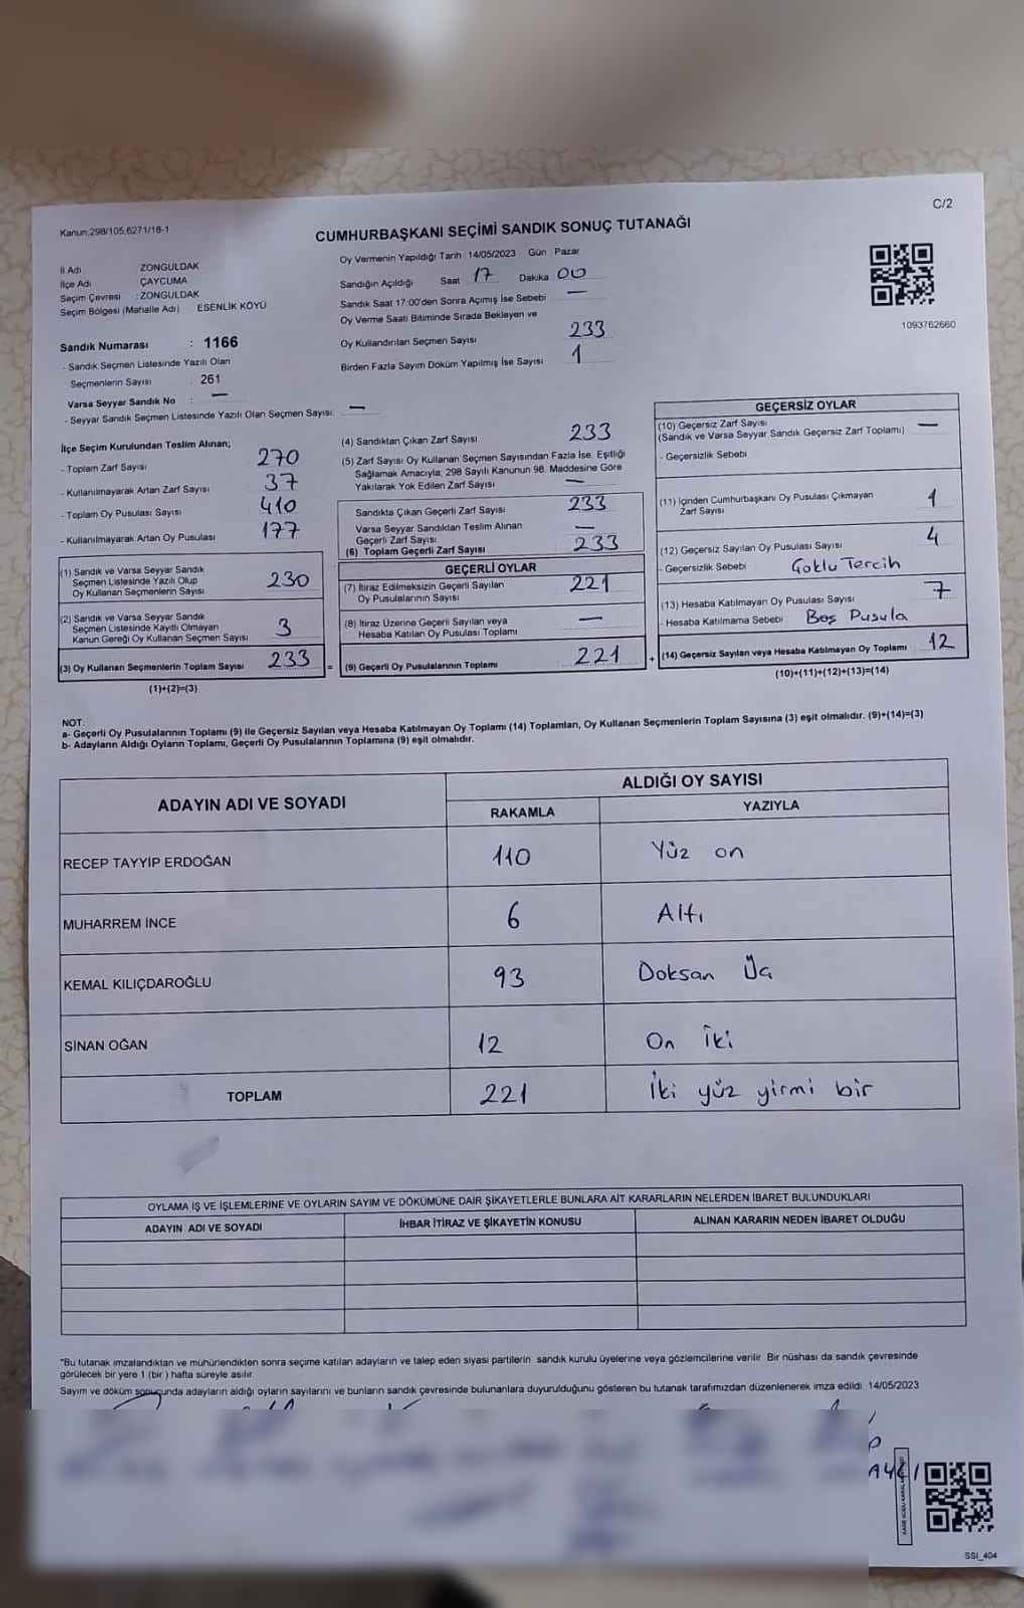 C/2
Kanun:298/105,6271/18-1
CUMHURBAŞKANI SEÇİMİ SANDIK SONUÇ TUTANAĞI
İl Adı ZONGULDAK
İlçe Adı ÇAYCUMA
Seçim Çevresi : ZONGULDAK
Seçim Bölgesi (Mahalle Adı) ESENLİK KÖYÜ
Oy Vermenin Yapıldığı Tarih 14/05/2023 Gün Pazar
Sandığın Açıldığı Saat 17 Dakika 00
Sandık Saat 17:00'den Sonra Açımış İse Sebebi —
Oy Verme Saati Bitiminde Sırada Bekleyen ve
Oy Kullandırılan Seçmen Sayısı 233
Birden Fazla Sayım Döküm Yapılmış İse Sayısı 1
1093762660
Sandık Numarası : 1166
- Sandık Seçmen Listesinde Yazılı Olan
Seçmenlerin Sayısı 261
Varsa Seyyar Sandık No —
- Seyyar Sandık Seçmen Listesinde Yazılı Olan Seçmen Sayısı: —
İlçe Seçim Kurulundan Teslim Alınan;
- Toplam Zarf Sayısı 270
- Kullanılmayarak Artan Zarf Sayısı 37
- Toplam Oy Pusulası Sayısı 410
- Kullanılmayarak Artan Oy Pusulası 177
(1) Sandık ve Varsa Seyyar Sandık
Seçmen Listesinde Yazılı Olup
Oy Kullanan Seçmenlerin Sayısı 230
(2) Sandık ve Varsa Seyyar Sandık
Seçmen Listesinde Kayıtlı Olmayan
Kanun Gereği Oy Kullanan Seçmen Sayısı 3
(3) Oy Kullanan Seçmenlerin Toplam Sayısı 233 =
(1)+(2)=(3)
(4) Sandıktan Çıkan Zarf Sayısı 233
(5) Zarf Sayısı Oy Kullanan Seçmen Sayısından Fazla İse, Eşitliği
Sağlamak Amacıyla; 298 Sayılı Kanunun 98. Maddesine Göre
Yakılarak Yok Edilen Zarf Sayısı —
Sandıkta Çıkan Geçerli Zarf Sayısı 233
Varsa Seyyar Sandıktan Teslim Alınan
Geçerli Zarf Sayısı —
(6) Toplam Geçerli Zarf Sayısı 233
GEÇERLİ OYLAR
(7) İtiraz Edilmeksizin Geçerli Sayılan
Oy Pusulalarının Sayısı 221
(8) İtiraz Üzerine Geçerli Sayılan veya
Hesaba Katılan Oy Pusulası Toplamı —
(9) Geçerli Oy Pusulalarının Toplamı 221 +
GEÇERSİZ OYLAR
(10) Geçersiz Zarf Sayısı
(Sandık ve Varsa Seyyar Sandık Geçersiz Zarf Toplamı) —
- Geçersizlik Sebebi
(11) İçinden Cumhurbaşkanı Oy Pusulası Çıkmayan
Zarf Sayısı 1
(12) Geçersiz Sayılan Oy Pusulası Sayısı 4
- Geçersizlik Sebebi Çoklu Tercih
(13) Hesaba Katılmayan Oy Pusulası Sayısı 7
- Hesaba Katılmama Sebebi Boş Pusula
(14) Geçersiz Sayılan veya Hesaba Katılmayan Oy Toplamı 12
(10)+(11)+(12)+(13)=(14)
NOT:
a- Geçerli Oy Pusulalarının Toplamı (9) ile Geçersiz Sayılan veya Hesaba Katılmayan Oy Toplamı (14) Toplamları, Oy Kullanan Seçmenlerin Toplam Sayısına (3) eşit olmalıdır. (9)+(14)=(3)
b- Adayların Aldığı Oyların Toplamı, Geçerli Oy Pusulalarının Toplamına (9) eşit olmalıdır.
ADAYIN ADI VE SOYADI ALDIĞI OY SAYISI
RAKAMLA YAZIYLA
RECEP TAYYİP ERDOĞAN 110 Yüz on
MUHARREM İNCE 6 Altı
KEMAL KILIÇDAROĞLU 93 Doksan Üç
SİNAN OĞAN 12 On iki
TOPLAM 221 İki yüz yirmi bir
OYLAMA İŞ VE İŞLEMLERİNE VE OYLARIN SAYIM VE DÖKÜMÜNE DAİR ŞİKAYETLERLE BUNLARA AİT KARARLARIN NELERDEN İBARET BULUNDUKLARI
ADAYIN ADI VE SOYADI İHBAR İTİRAZ VE ŞİKAYETİN KONUSU ALINAN KARARIN NEDEN İBARET OLDUĞU
"Bu tutanak imzalandıktan ve mühürlendikten sonra seçime katılan adayların ve talep eden siyasi partilerin sandık kurulu üyelerine veya gözlemcilerine verilir. Bir nüshası da sandık çevresinde
görülecek bir yere 1 (bir) hafta süreyle asılır.
Sayım ve döküm sonucunda adayların aldığı oyların sayılarını ve bunların sandık çevresinde bulunanlara duyurulduğunu gösteren bu tutanak tarafımızdan düzenlenerek imza edildi. 14/05/2023
SSI_404